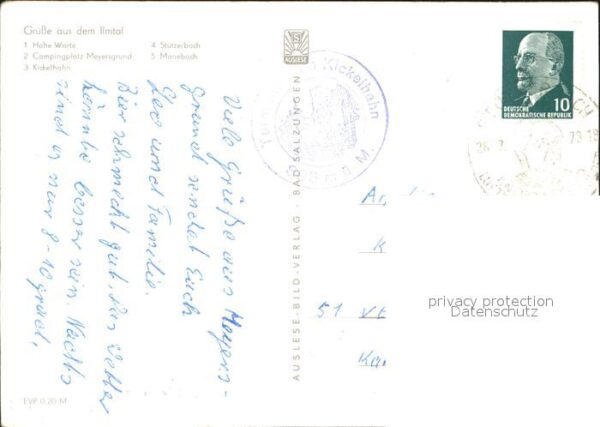 Grüße aus dem Ilmtal
1 Hohe Warte
2 Campingplatz Meyersgrund
3 Kickelhahn
4 Stützerbach
5 Manebach
AUSLESE
AUSLESE-BILD-VERLAG · BAD SALZUNGEN
Kickelhahn
861 m
DEUTSCHE
DEMOKRATISCHE REPUBLIK
10
Viele Grüße aus Meyers-
grund sendet Euch
Leo und Familie.
Bier schmeckt gut. Das Wetter
könnte besser sein. Nachts
sind es nur 8-10 grad.
privacy protection
Datenschutz
EVP 0,20 M